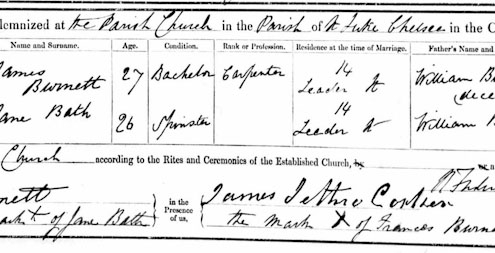 lemnized at the Parish Church in the Parish of St Luke Chelsea in the C
Name and Surname. Age. Condition. Rank or Profession. Residence at the time of Marriage. Father's Name and
James Burnett 27 Bachelor Carpenter 14 Leader St William B
(dece
Jane Bath 26 Spinster 14 Leader St William B
Church according to the Rites and Ceremonies of the Established Church, by or a
nett in the Presence of us, James Jethro
mark of Jane Bath the Mark X of Frances Burne